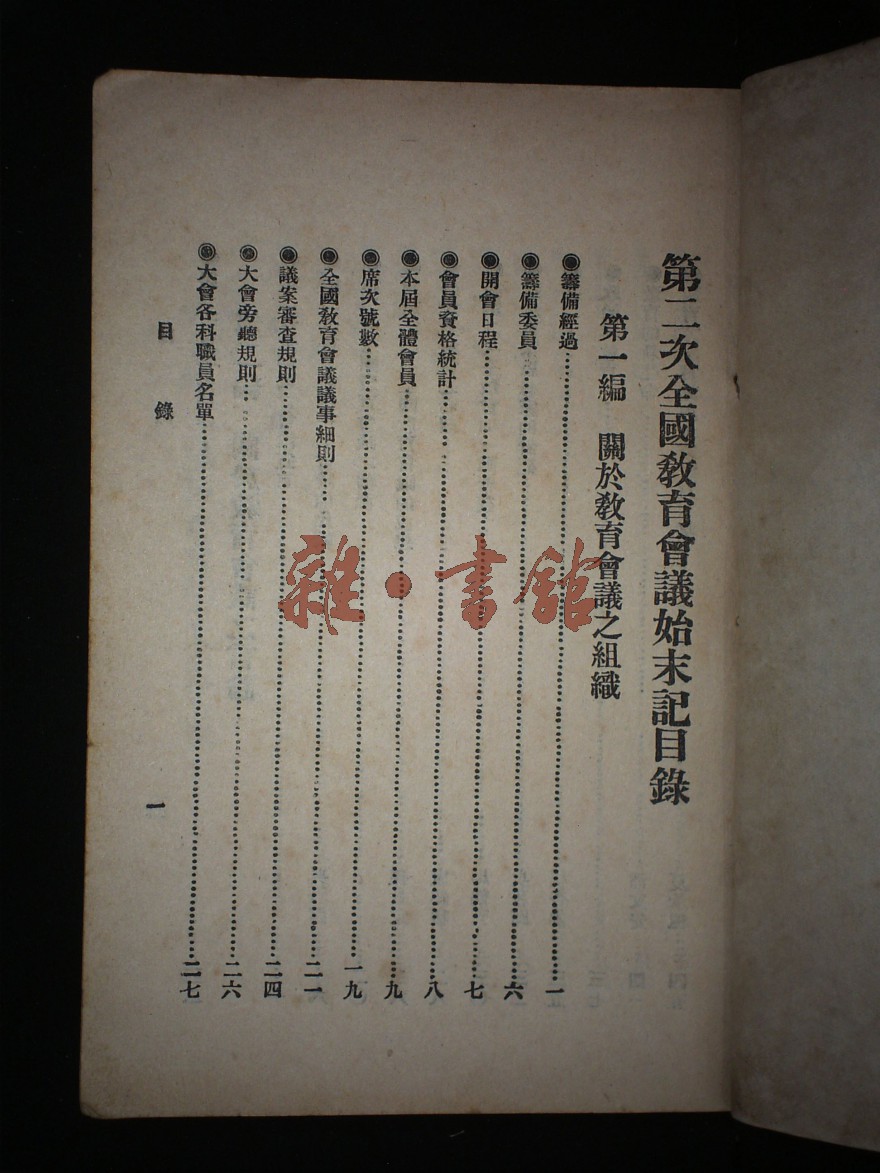 第二次全國教育會議始末記目錄
第一編　關於教育會議之組織
◉籌備經過…………一
◉籌備委員…………六
◉開會日程…………七
◉會員資格統計…………八
◉本屆全體會員…………九
◉席次號數…………一九
◉全國教育會議議事細則…………二一
◉議案審查規則…………二四
◉大會旁聽規則…………二六
◉大會各科職員名單…………二七
目　錄
一
雜·書館